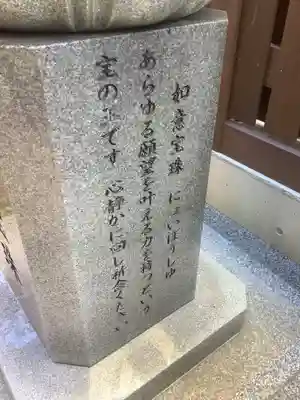 如意宝珠 にょいほうしゅ
あらゆる願望を叶える力を持つという
宝の玉です 心静かに回し祈念ください